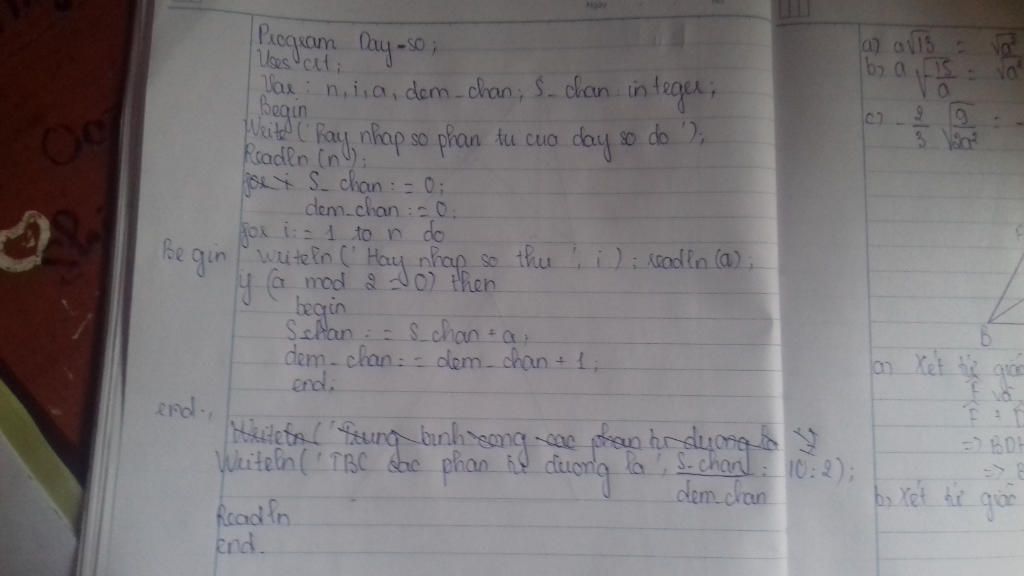 Program Day-so;
Uses crt;
Var: n, i, a, dem_chan, S_chan: integer;
Begin
Write('Hay nhap so phan tu cua day so do');
Readln (n);
for i S_chan: = 0;
dem_chan: = 0;
for i: = 1 to n do
Begin writeln('Hay nhap so thu', i); readln(a);
if (a mod 2 = 0) then
begin
S_chan: = S_chan + a;
dem_chan: = dem_chan + 1;
end;
end;
Writeln('Trung binh cong cac phan tu duong la
Writeln('TBC cac phan tu duong la', S_chan : 10:2);
dem_chan
Readln
end.
a) a√13 = √a²
b) a √15/a = √a²
c) - 2/3 √9/
B
a) Xét tứ giác
F và
=> BDH
=> B
b, Xét tứ giác